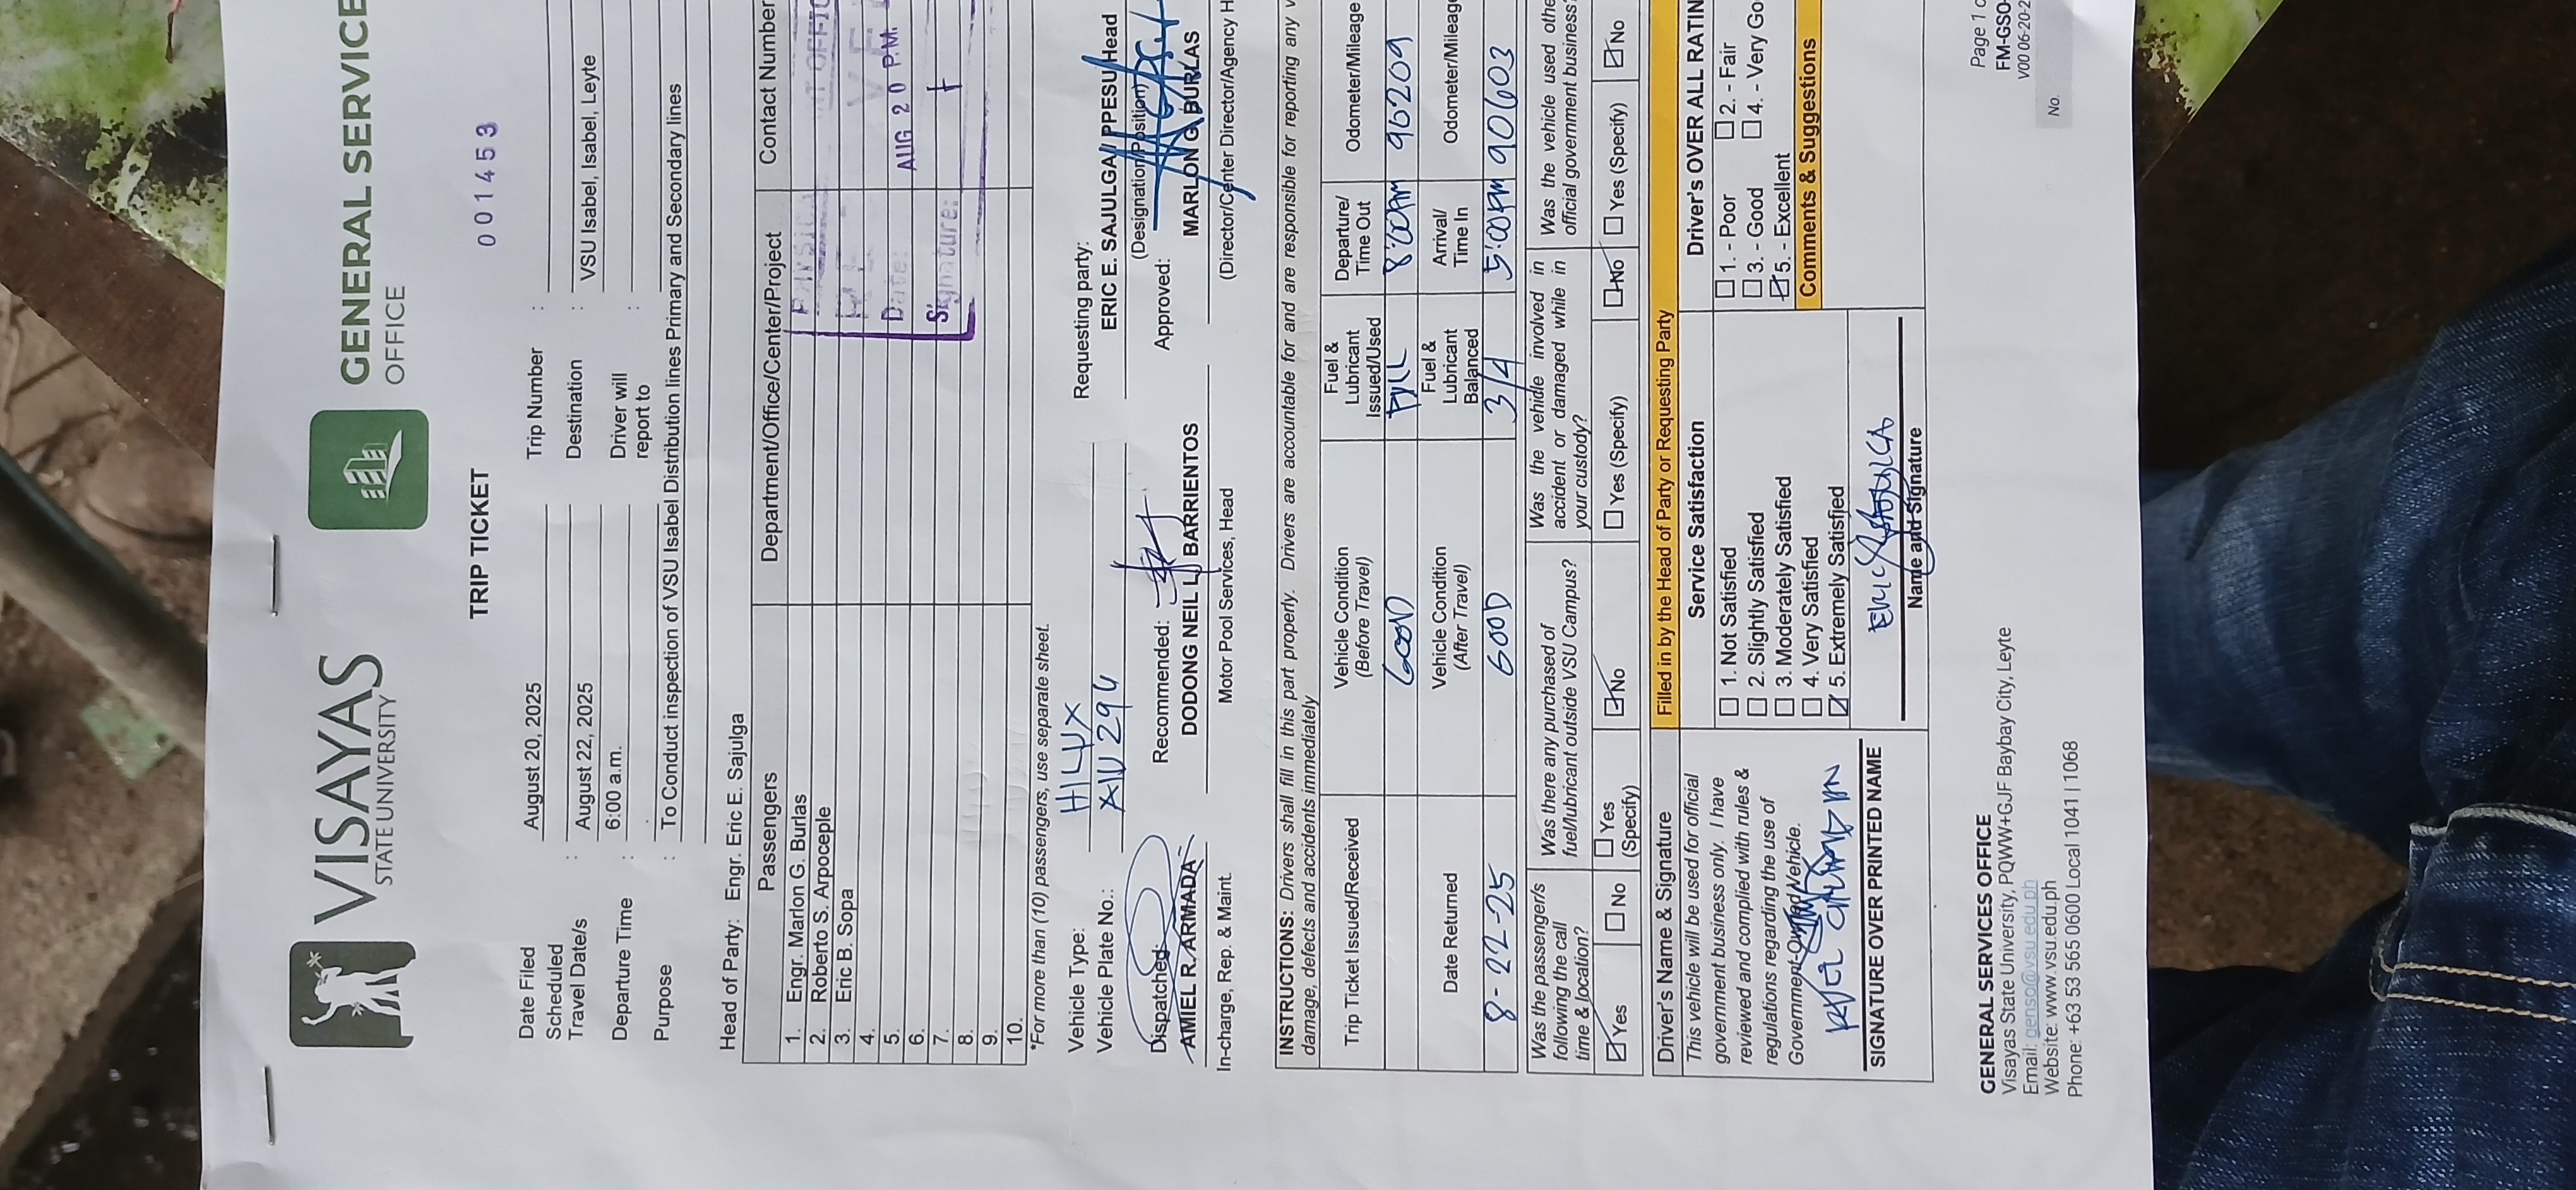 VISAYAS
STATE UNIVERSITY
GENERAL SERVICE
OFFICE
TRIP TICKET
001453
Date Filed August 20, 2025 Trip Number :
Scheduled Travel Date/s : August 22, 2025 Destination : VSU Isabel, Isabel, Leyte
Departure Time : 6:00 a.m. Driver will report to :
Purpose : To Conduct inspection of VSU Isabel Distribution lines Primary and Secondary lines
Head of Party: Engr. Eric E. Sajulga
Passengers Department/Office/Center/Project Contact Number
1. Engr. Marlon G. Burlas
2. Roberto S. Arpoceple
3. Eric B. Sopa
4.
5.
6.
7.
8.
9.
10.
Date: AUG 20 P.M.
Signature:
*For more than (10) passengers, use separate sheet.
Vehicle Type: HILUX
Vehicle Plate No.:
Requesting party:
ERIC E. SAJULGA/ PPESU Head
(Designation/Position)
Dispatched: Recommended: Approved:
AMIEL R. ARMADA DODONG NEIL L. BARRIENTOS MARLON G. BURLAS
In-charge, Rep. & Maint. Motor Pool Services, Head (Director/Center Director/Agency H
INSTRUCTIONS: Drivers shall fill in this part properly. Drivers are accountable for and are responsible for reporting any
damage, defects and accidents immediately
Trip Ticket Issued/Received Vehicle Condition (Before Travel) Fuel & Lubricant Issued/Used Departure/ Time Out Odometer/Mileage
GOOD FULL 8:00AM 90209
Date Returned Vehicle Condition (After Travel) Fuel & Lubricant Balanced Arrival/ Time In Odometer/Mileage
8-22-25 GOOD 3/4 5:00PM 90603
Was the passenger/s following the call time & location? Was there any purchased of fuel/lubricant outside VSU Campus? Was the vehicle involved in accident or damaged while in your custody? Was the vehicle used othe official government business?
Yes No Yes (Specify) No Yes (Specify) No Yes (Specify) No
Driver's Name & Signature Filled in by the Head of Party or Requesting Party
This vehicle will be used for official
government business only. I have
reviewed and complied with rules &
regulations regarding the use of
Government-Owned Vehicle.
SIGNATURE OVER PRINTED NAME
Service Satisfaction
1. Not Satisfied
2. Slightly Satisfied
3. Moderately Satisfied
4. Very Satisfied
5. Extremely Satisfied
ERIC SAJULGA
Name and Signature
Driver's OVER ALL RATIN
1. - Poor 2. - Fair
3. - Good 4. - Very Go
5. - Excellent
Comments & Suggestions
GENERAL SERVICES OFFICE
Visayas State University, PQWW+GJF Baybay City, Leyte
Email: genso@vsu.edu.ph
Website: www.vsu.edu.ph
Phone: +63 53 565 0600 Local 1041 | 1068
Page 1 o
FM-GSO-
V00 06-20-2
No.